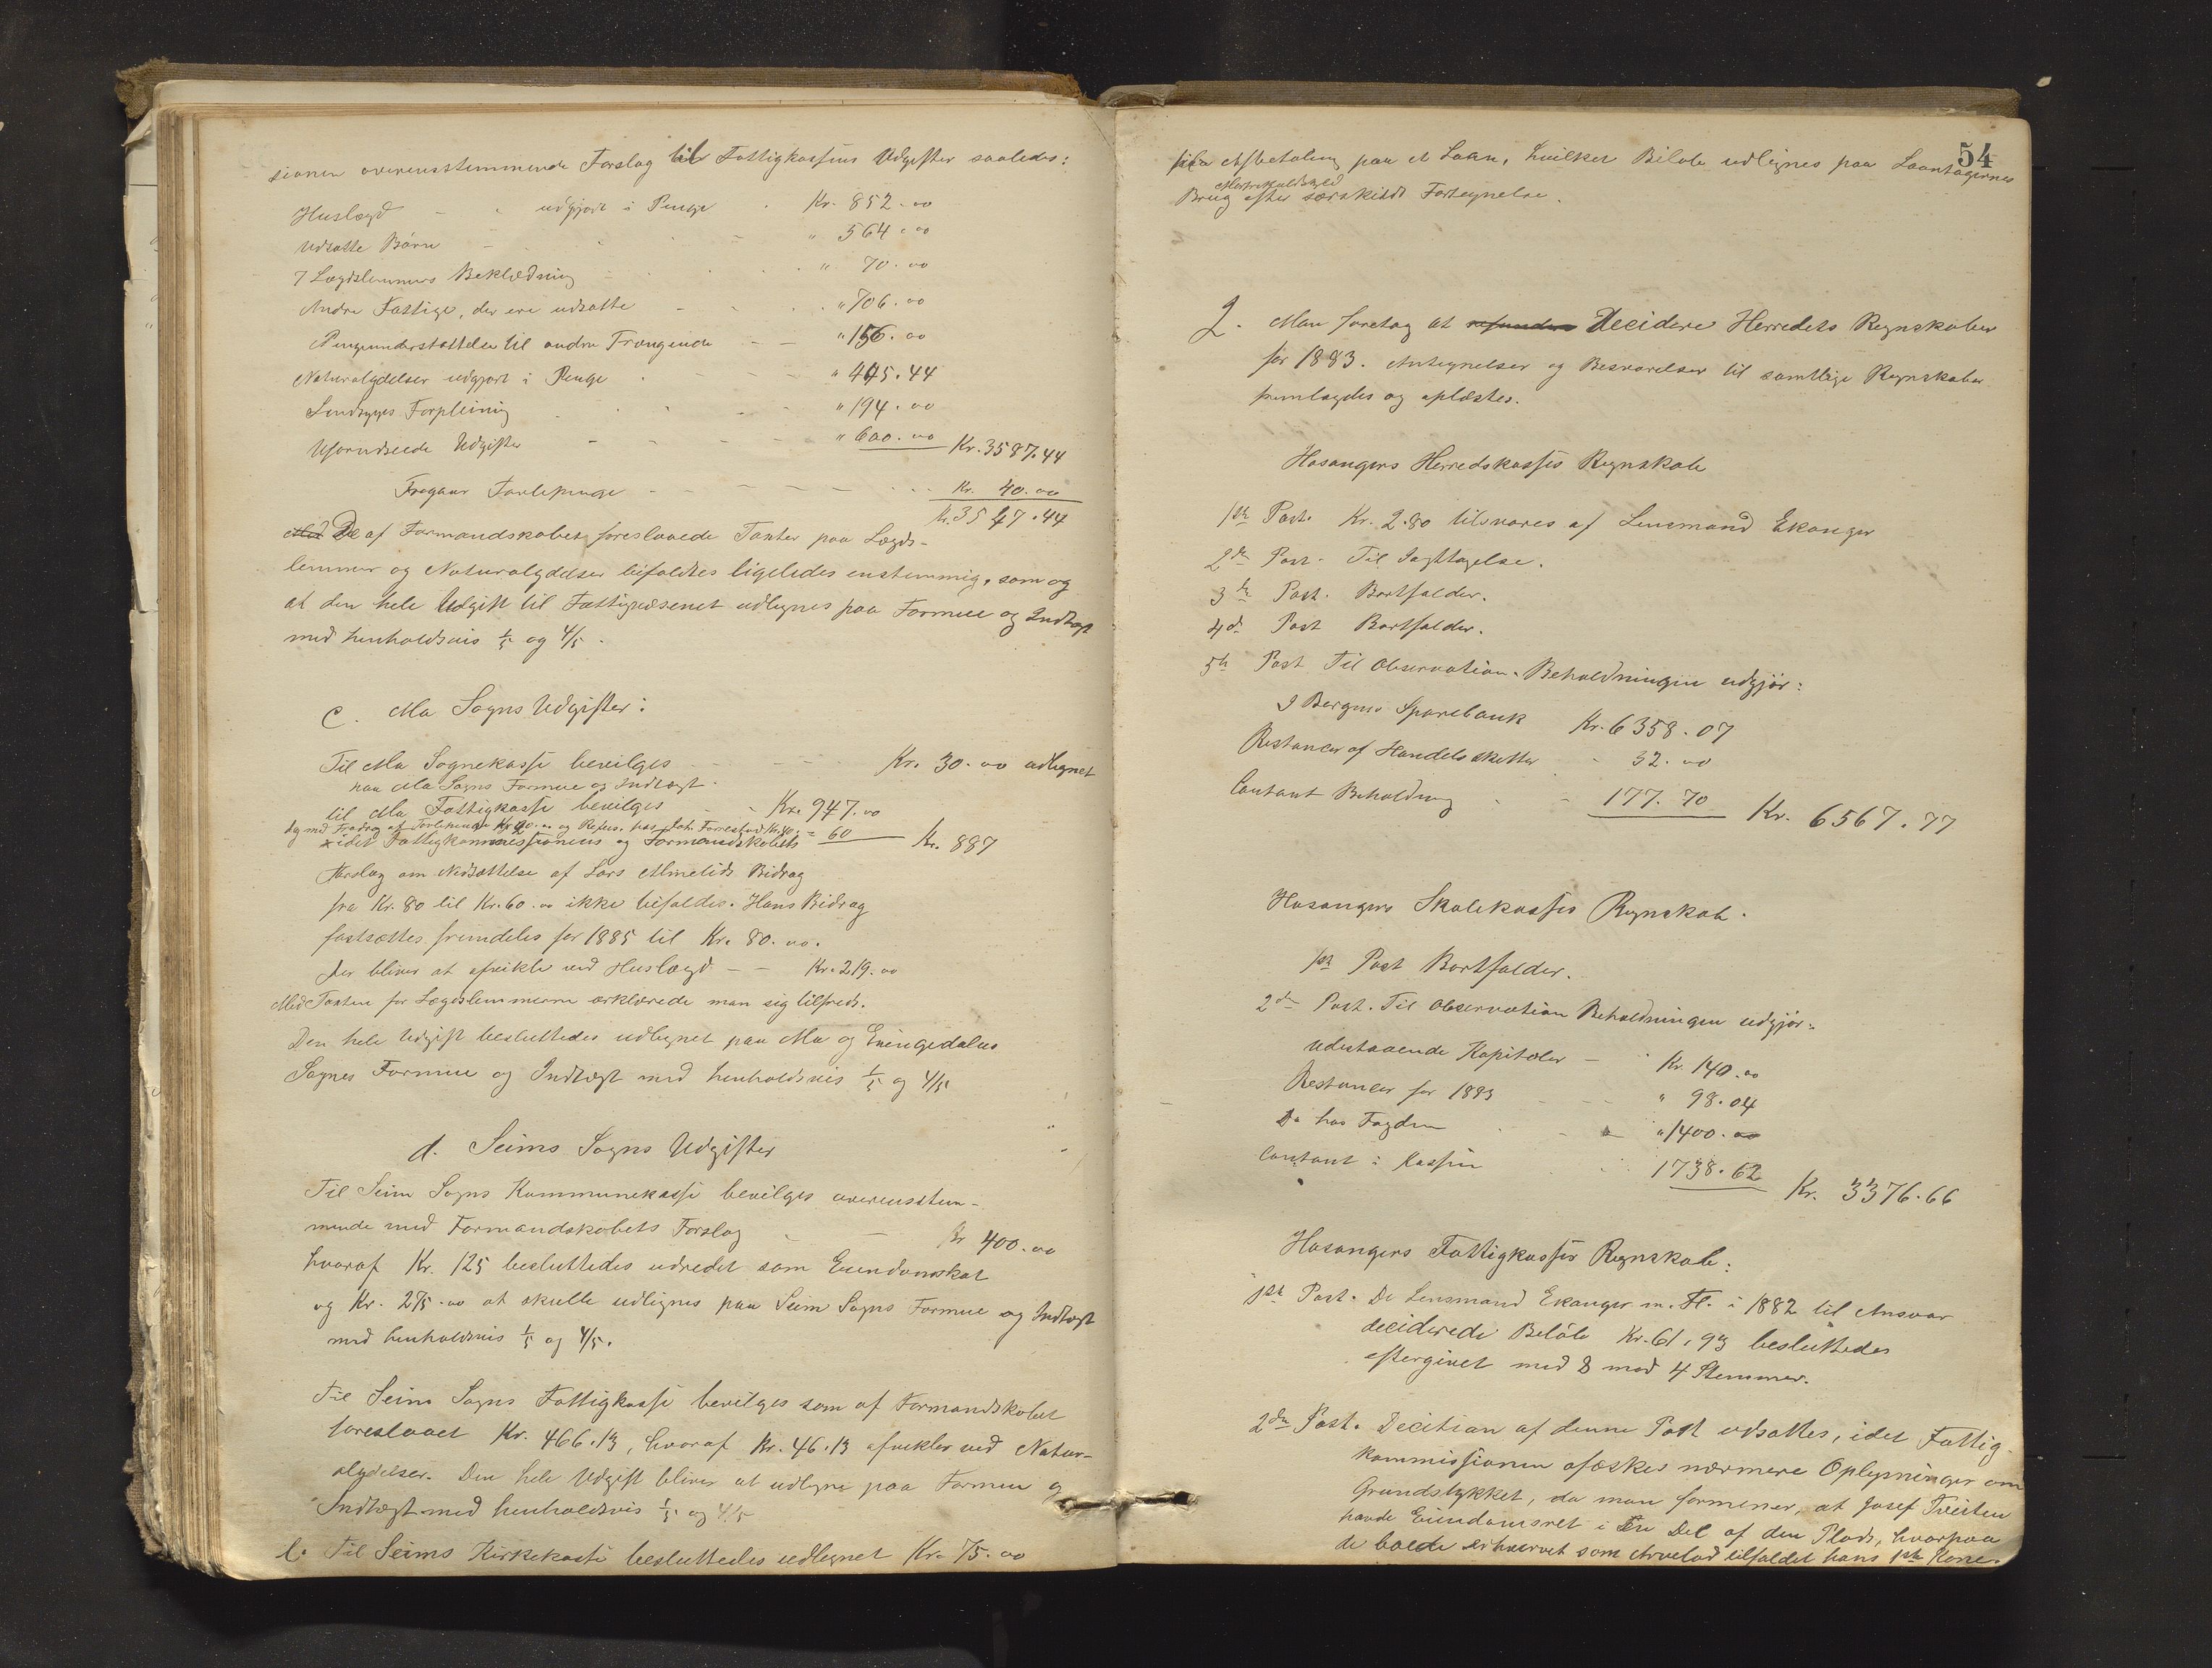 sionen overensstemmende Forslag til Fattigkassens Udgifter saaledes:
Huslægd - - udgjort i Penge - Kr. 852.00
Udsatte Børn - - - - " 564.00
7 Lægdslemmers Beklædning - - - " 70.00
Andre Fattige, der ere udsatte - - - " 706.00
Pengeunderstøttelse til andre Trængende - - " 156.00
Naturalydelser udgjort i Penge - - - " 445.44
Sindsyges Forpleining - - - " 194.00
Uforudseede Udgifter - - - - " 600.00 Kr. 3587.44
Fragaar Tavlepenge - - - - - Kr. 40.00
Kr. 3547.44
De af Formandskabet foreslaaede Taxter paa Lægds-
lemmer og Naturalydelser bifaldtes ligeledes enstemmig, som og
at den hele Udgift til Fattigvæsenet udlignes paa Formue og Indtægt
med henholdsvis 1/5 og 4/5.
c. Mo Sogns Udgifter:
Til Mo Sognekasse bevilges - - - Kr. 30.00 udlignet
paa Mo Sogns Formue og Indtægt.
til Mo Fattigkasse bevilges - - Kr. 947.00
og med Fradrag af Tavlepenge Kr 20.00 og Refus. hos Joh. Kr. 40. = 60 Kr. 887
x idet Fattigkommissionens og Formandskabets
Forslag om Nedsættelse af Lars Almelids Bidrag
fra Kr. 80 til Kr. 60.00 ikke bifaldes. Hans Bidrag
fastsættes fremdeles for 1885 til Kr. 80.00.
Der bliver at afvikle ved Huslægd - - Kr. 219.00
Med Taxten for Lægdslemmerne erklærede man sig tilfreds.
Den hele Udgift besluttedes udlignet paa Mo og Eksingedalens
Sognes Formue og Indtægt med henholdsvis 1/5 og 4/5
d. Seims Sogns Udgifter
Til Seim Sogns Kommunekasse bevilges overensstem-
mende med Formandskabets Forslag - - Kr 400.00
hvoraf Kr. 125 besluttedes udredet som Eiendomsskat
og Kr. 275.00 at skulle udlignes paa Seim Sogns Formue og Indtægt
med henholdsvis 1/5 og 4/5.
Til Seims Sogns Fattigkasse bevilges som af Formandskabet
foreslaaet Kr. 466.13, hvoraf Kr. 46.13 afvikles ved Natur-
alydelser. Den hele Udgift bliver at udligne paa Formue og
Indtægt med henholdsvis 1/5 og 4/5
e. Til Seims Kirkekasse besluttedes udlignet Kr. 75.00
54
Afbetaling paa et Laan, hvilket Beløb udlignes paa Laantagernes
Matrikulskyld
Brug efter særskildt Fortegnelse.
2. Man foretog at Decidere Herredets Regnskaber
for 1883. Antegnelser og Besvarelser til samtlige Regnskaber
fremlagdes og oplæstes.
Hosangers Herredskasses Regnskab
1ste Post. Kr. 2.80 tilsvares af Lensmand Ekanger
2den Post. Til Iagttagelse.
3de Post. Bortfalder.
4de Post Bortfalder.
5te Post Til Observation. Beholdningen udgjør:
I Bergens Sparebank Kr. 6358.07
Restancer af Handelsskatter - 32.00
Contant Beholdning - - 177.70 Kr. 6567.77
Hosangers Skolekasses Regnskab.
1ste Post Bortfalder.
2den Post. Til Observation Beholdningen udgjør:
Udestaaende Kapitaler - - Kr. 140.00
Restancer for 1883 - - - " 98.04
Do hos Fogden - - - " 1400.00
Contant i Kassen - - 1738.62 Kr. 3376.66
Hosangers Fattigkasses Regnskab:
1ste Post. De Lensmand Ekanger m. Fl. i 1882 til Ansvar
deciderede Beløb Kr. 61.93 besluttedes
eftergivet med 8 mod 4 Stemmer.
2den Post. Decition af denne Post udsattes, idet Fattig-
kommissionen afæsker nærmere Oplysninger om
Grundstykket, da man formener, at Josef Tveiten
havde Eiendomsret i En Del af den Plads, hvorpaa
de boede som Arvelod tilfaldet hans 1ste Kone.